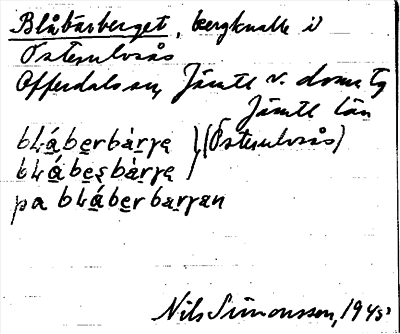 Blåbärberget, bergknalle i
Östersulvsås
Offerdals sn, Jämtl v. doms tg
Jämtl län
bláberbàrje } (Östersulvsås)
blábesbàrje
på bláberbarjan
Nils Simonsson, 1945